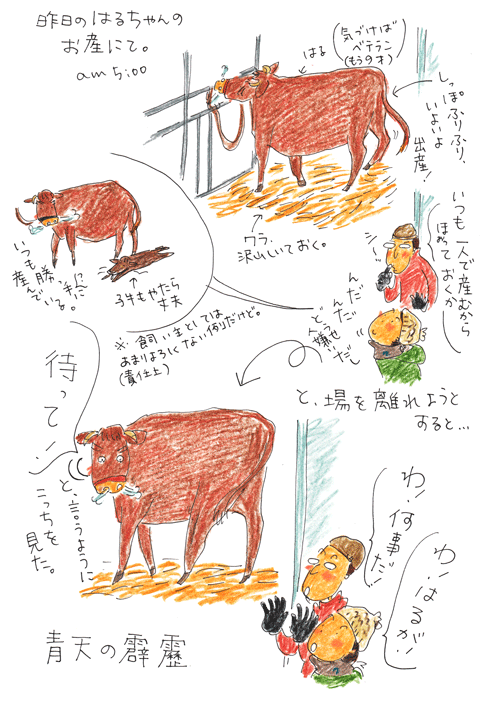 昨日のはるちゃんの
お産にて。
am 5:00
はる
気づけば
ベテラン
(もうの才)
しっぽふりふり、
いよいよ
出産!
ワラ、
沢山しいておく。
いつも勝手に
産んでいる。
子牛もやたら
丈夫
※飼い主としては
あまりよろしくない例だけど。
(責任上)
いつも一人で産むから
ほおっておくか
シー
んだんだ
どうせ
人嫌いだし
と、場を離れようと
すると…
待って!
と、言うように
こっちを
見た。
わ!何事だ!
わ!はるが!
青天の霹靂